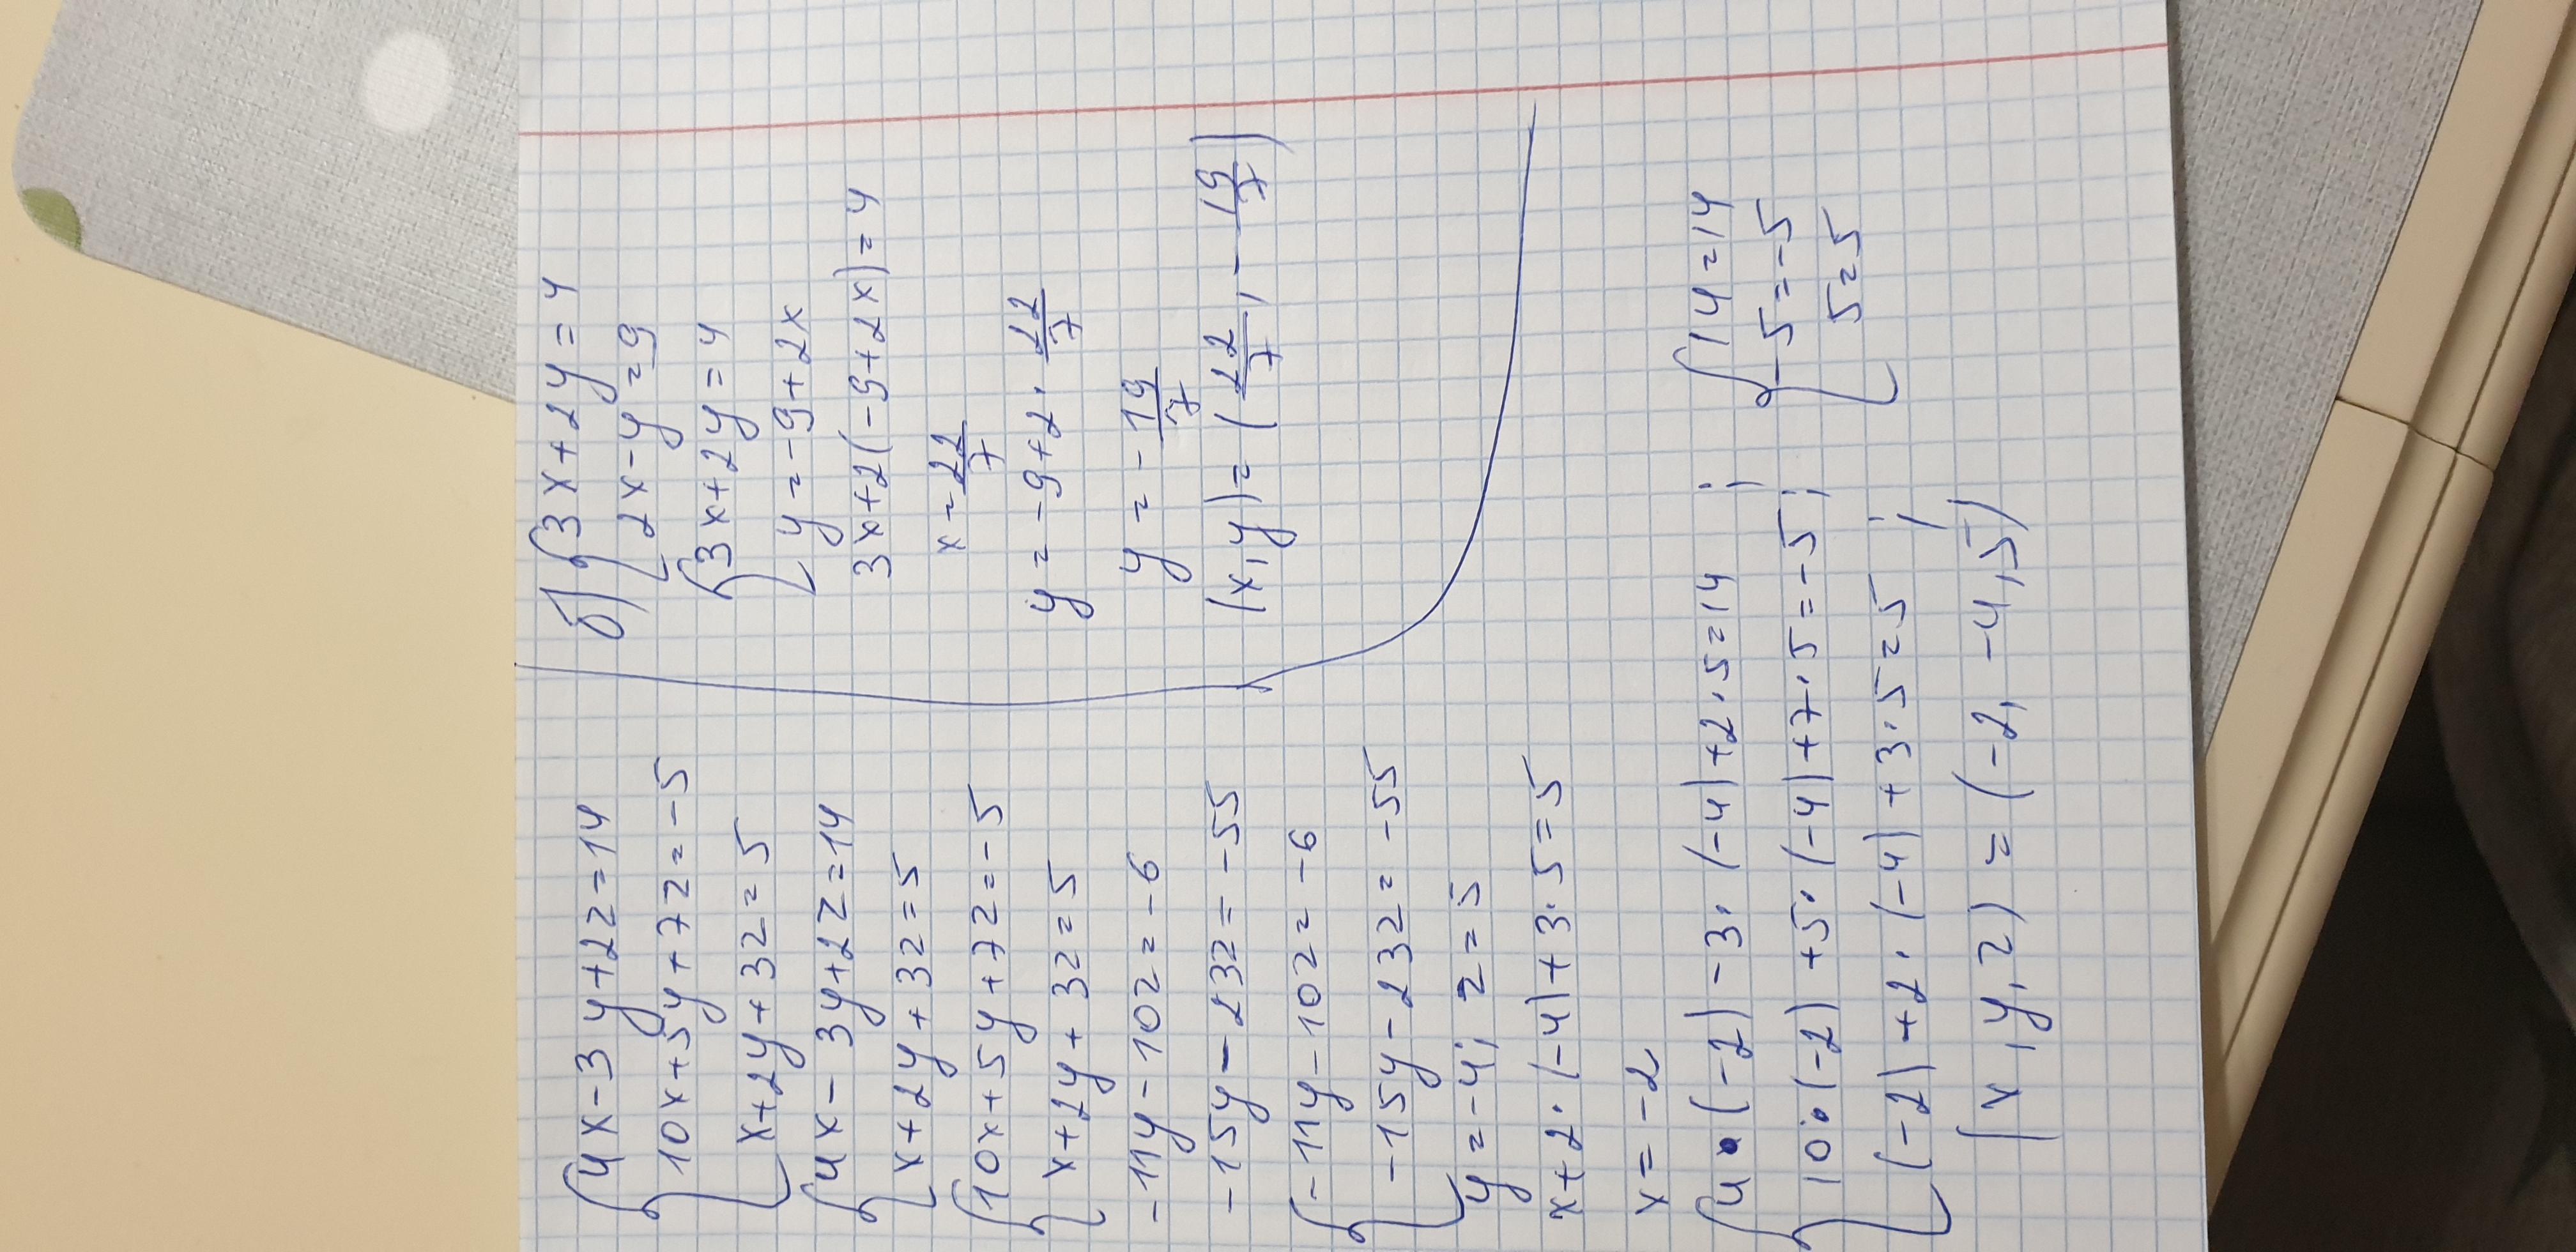 4x-3y+2z=14
10x+5y+7z=-5
x+2y+3z=5
4x-3y+2z=14
x+2y+3z=5
10x+5y+7z=-5
x+2y+3z=5
-11y-10z=-6
-15y-23z=-55
-11y-10z=-6
-15y-23z=-55
y=-4; z=5
x+2·(-4)+3·5=5
x=-2
4·(-2)-3·(-4)+2·5=14 ; 14=14
10·(-2)+5·(-4)+7·5=-5; -5=-5
(-2)+2·(-4)+3·5=5 ; 5=5
(x,y,z)=(-2,-4,5)
б) 3x+2y=4
2x-y=9
3x+2y=4
y=-9+2x
3x+2(-9+2x)=4
x=22/7
y=-9+2·22/7
y=-19/7
(x,y)=(22/7,-19/7)